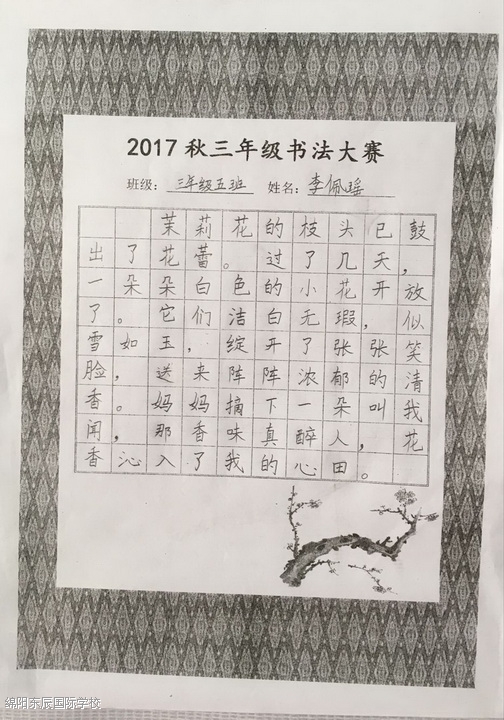 2017秋三年级书法大赛
班级：三年级五班 姓名：李佩瑶
茉莉花的枝头已鼓
出了花蕾。过了几天，
一朵朵白色的小花开放
了。它们洁白无瑕，似
雪如玉，绽开了张张笑
脸，送来阵阵浓郁的清
香。妈妈摘下一朵叫我
闻，那香味真醉人，花
香沁入了我的心田。
绵阳东辰国际学校